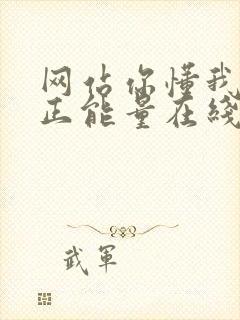 网站你懂我
正能量在线
武軍